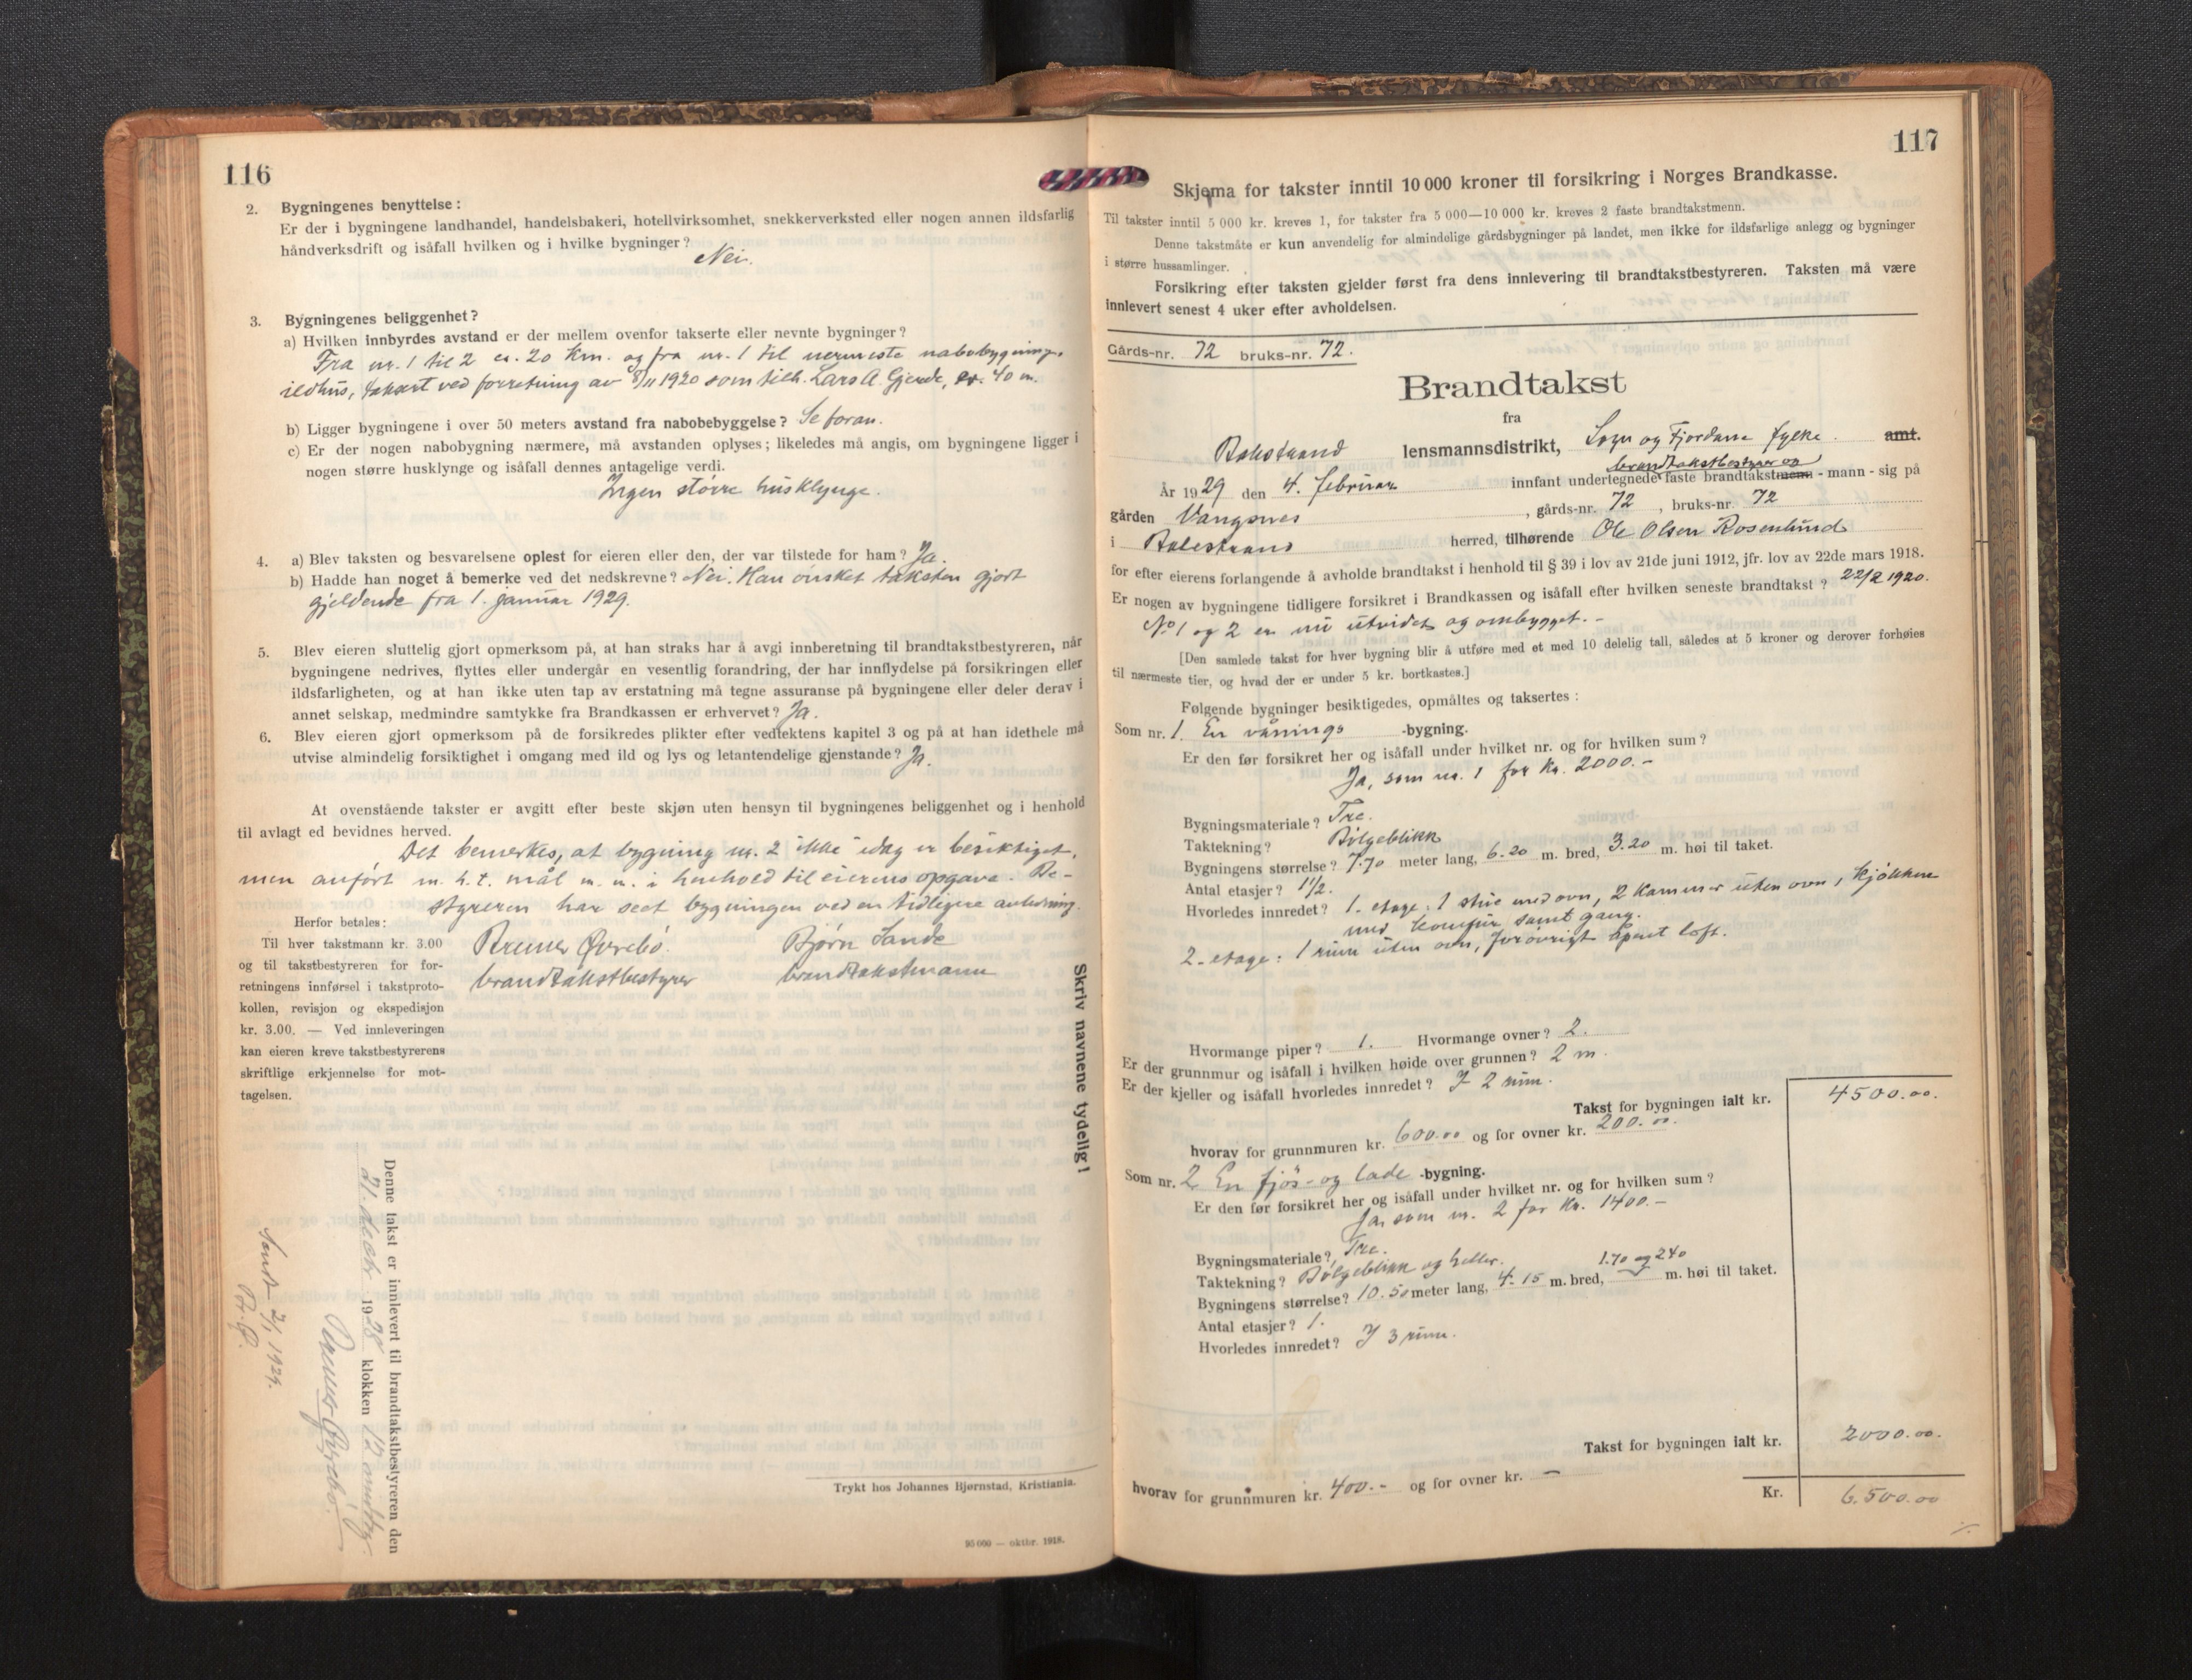 116
2. Bygningenes benyttelse:
Er der i bygningene landhandel, handelsbakeri, hotellvirksomhet, snekkerverksted eller nogen annen ildsfarlig
håndverksdrift og isåfall hvilken og i hvilke bygninger?
Nei.
3. Bygningenes beliggenhet?
a) Hvilken innbyrdes avstand er der mellem ovenfor takserte eller nevnte bygninger?
Fra nr. 1 til 2 ca. 20 km. og fra nr. 1 til nermeste nabobygning,
ildhus, taksert ved forretning av 8/11 1920 som tilh. Lars A. Gjerde, er. 40 m.
b) Ligger bygningene i over 50 meters avstand fra nabobebyggelse? Se foran.
c) Er der nogen nabobygning nærmere, må avstanden oplyses; likeledes må angis, om bygningene ligger i
nogen større husklynge og isåfall dennes antagelige verdi.
Ingen större husklynge.
4. a) Blev taksten og besvarelsene oplest for eieren eller den, der var tilstede for ham? Ja.
b) Hadde han noget å bemerke ved det nedskrevne? Nei. Han önsket taksten gjort
gjeldende fra 1. januar 1929.
5. Blev eieren sluttelig gjort opmerksom på, at han straks har å avgi innberetning til brandtakstbestyreren, når
bygningene nedrives, flyttes eller undergår en vesentlig forandring, der har innflydelse på forsikringen eller
ildsfarligheten, og at han ikke uten tap av erstatning må tegne assuranse på bygningene eller deler derav i
annet selskap, medmindre samtykke fra Brandkassen er erhvervet? Ja.
6. Blev eieren gjort opmerksom på de forsikredes plikter efter vedtektens kapitel 3 og på at han idethele må
utvise almindelig forsiktighet i omgang med ild og lys og letantendelige gjenstande? Ja.
At ovenstående takster er avgitt efter beste skjøn uten hensyn til bygningenes beliggenhet og i henhold
til avlagt ed bevidnes herved.
Det bemerkes, at bygning nr. 2 ikke idag er besiktiget,
men anfört m. h. t. mål m. m. i henhold til eierens opgave. Be-
styreren har seet bygningen ved en tidligere anledning.
Herfor betales:
Til hver takstmann kr. 3.00
og til takstbestyreren for for-
retningens innførsel i takstproto-
kollen, revisjon og ekspedisjon
kr. 3.00. — Ved innleveringen
kan eieren kreve takstbestyrerens
skriftlige erkjennelse for mot-
tagelsen.
Bremer Øvrebö.
brandtakstbestyrer
Bjørn Sande
brandtakstmann
Skriv navnene tydelig!
Denne takst er innlevert til brandtakstbestyreren den
21. decbr 1928 klokken 12 middag.
Bremer Øvrebö.
Sendt 2/1 1929.
Br. Ø.
Trykt hos Johannes Bjørnstad, Kristiania.
95 000 — oktbr. 1918.
117
Skjema for takster inntil 10 000 kroner til forsikring i Norges Brandkasse.
Til takster inntil 5 000 kr. kreves 1, for takster fra 5 000—10 000 kr. kreves 2 faste brandtakstmenn.
Denne takstmåte er kun anvendelig for almindelige gårdsbygninger på landet, men ikke for ildsfarlige anlegg og bygninger
i større hussamlinger.
Forsikring efter taksten gjelder først fra dens innlevering til brandtakstbestyreren. Taksten må være
innlevert senest 4 uker efter avholdelsen.
Gårds-nr. 72 bruks-nr. 72.
Brandtakst
fra
Balestrand lensmannsdistrikt, Sogn og Fjordane fylke. amt.
brandtakstbestyrer og
År 1929 den 4. februar innfant undertegnede faste brandtakstmenn - mann - sig på
gården Vangsnes, gårds-nr. 72, bruks-nr. 72
i Balestrand herred, tilhørende Ole Olsen Rosenlund
for efter eierens forlangende å avholde brandtakst i henhold til § 39 i lov av 21de juni 1912, jfr. lov av 22de mars 1918.
Er nogen av bygningene tidligere forsikret i Brandkassen og isåfall efter hvilken seneste brandtakst? 22/2 1920.
No 1 og 2 er nu utvidet og ombygget. -
[Den samlede takst for hver bygning blir å utføre med et med 10 delelig tall, således at 5 kroner og derover forhøies
til nærmeste tier, og hvad der er under 5 kr. bortkastes.]
Følgende bygninger besiktigedes, opmåltes og taksertes:
Som nr. 1. En vånings -bygning.
Er den før forsikret her og isåfall under hvilket nr. og for hvilken sum?
Ja, som nr. 1 for kr. 2000.-
Bygningsmateriale? Tre.
Taktekning? Bölgeblikk
Bygningens størrelse? 7.70 meter lang, 6.20 m. bred, 3.20 m. høi til taket.
Antal etasjer? 1 1/2.
Hvorledes innredet? 1. etage: 1 stue med ovn, 2 kammer uten ovn, 1 kjökken
med komfür samt gang.
2. etage: 1 rum uten ovn, forövrigt åpent loft.
Hvormange piper? 1. Hvormange ovner? 2.
Er der grunnmur og isåfall i hvilken høide over grunnen? 2 m.
Er der kjeller og isåfall hvorledes innredet? I 2 rum.
Takst for bygningen ialt kr. 4500.00.
hvorav for grunnmuren kr. 600.00 og for ovner kr. 200.00.
Som nr. 2 En fjös- og lade -bygning.
Er den før forsikret her og isåfall under hvilket nr. og for hvilken sum?
Ja, som nr. 2 for kr. 1400.-
Bygningsmateriale? Tre.
Taktekning? Bölgeblikk og heller.
1.70 og 240
Bygningens størrelse? 10.50 meter lang, 4.15 m. bred, m. høi til taket.
Antal etasjer? 1.
Hvorledes innredet? I 3 rum.
Takst for bygningen ialt kr. 2000.00.
hvorav for grunnmuren kr. 400.- og for ovner kr. —
Kr. 6.500.00